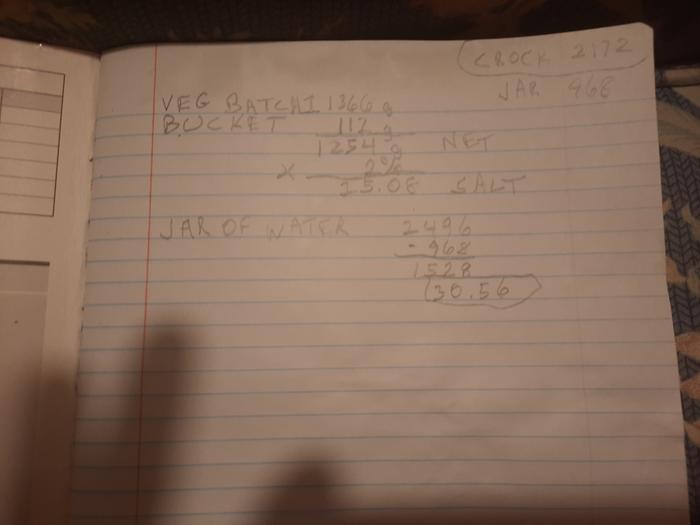 CROCK 2172
JAR 968
VEG BATCH 1 1366 g
BUCKET 112 g
1254 g NET
x 2%
25.08 SALT
JAR OF WATER 2496
- 968
1528
30.56